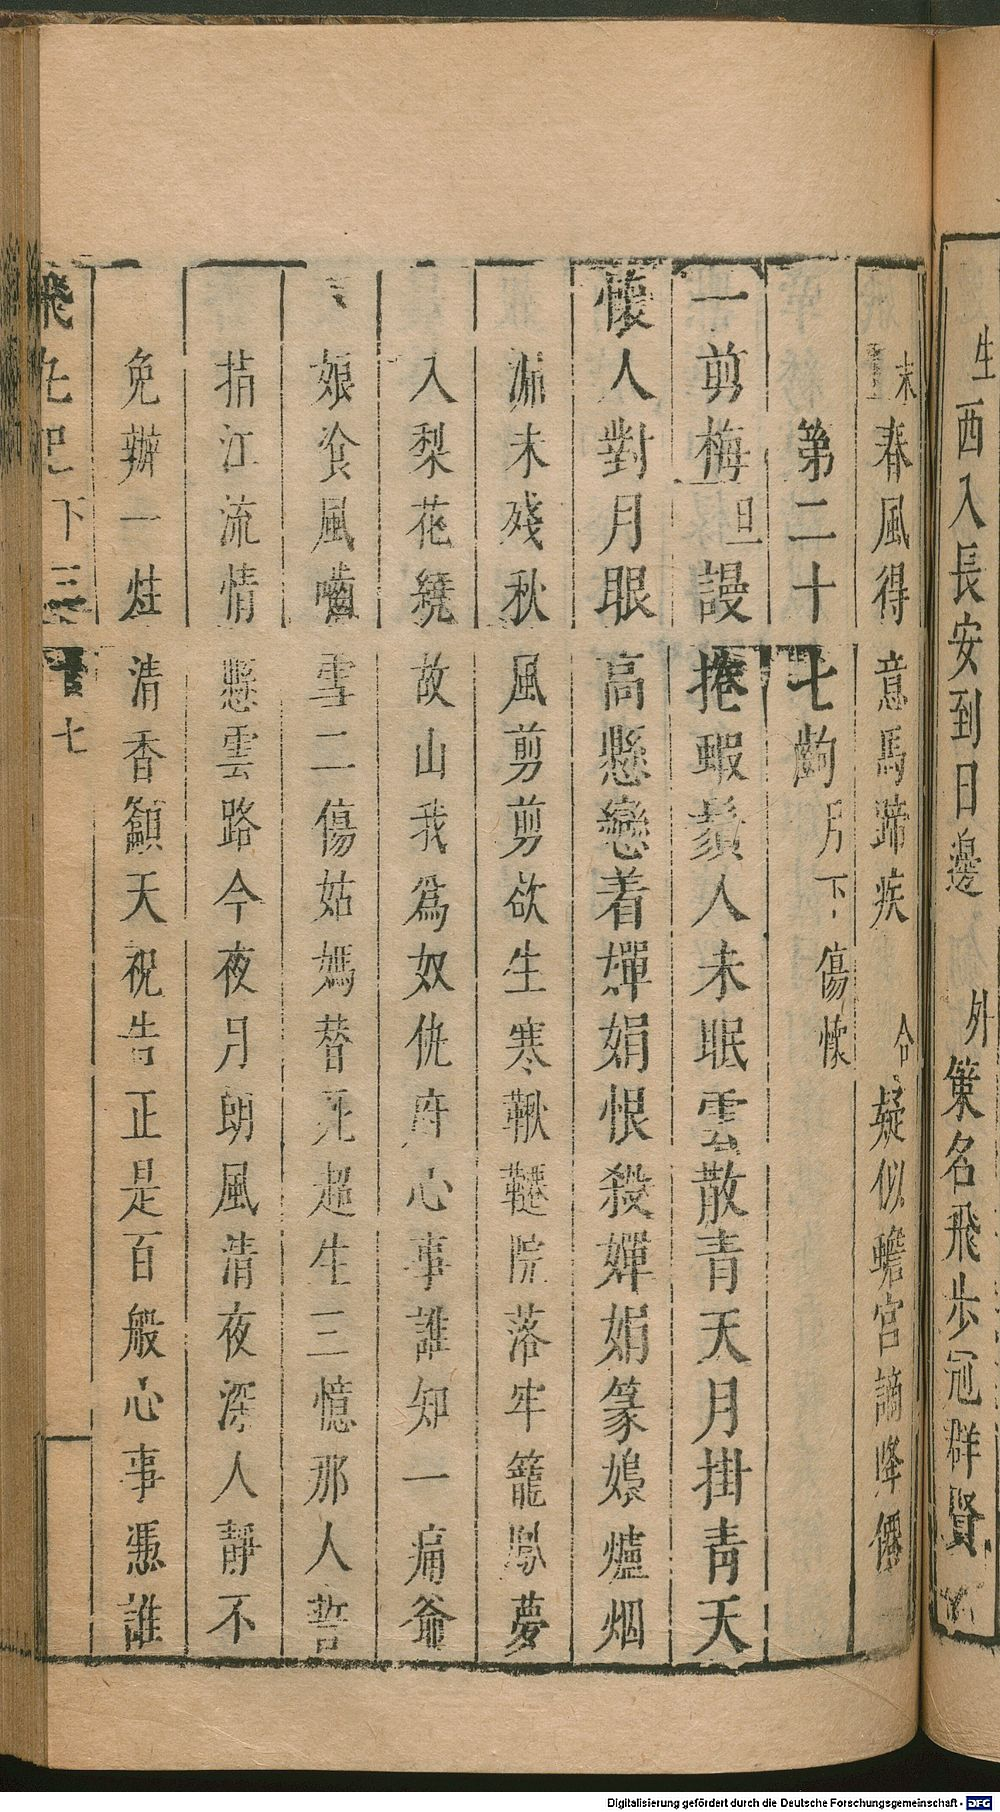 生西入長安到日邊 外策名飛步冠群賢
末春風得意馬蹄疾 合疑似蟾宮謫降僊
第二十七齣 月下傷懷
一剪梅 旦謾捲蝦鬚人未眠雲散青天月掛青天
懷人對月眼高懸戀着嬋娟恨殺嬋娟篆裊爐烟
漏未殘秋風剪剪欲生寒鞦韆院落牢籠鳳夢
入梨花繞故山我爲奴仇府心事誰知一痛爺
娘飡風嚙雪二傷姑媽替死超生三憶那人誓
指江流情懸雲路今夜月朗風清夜深人靜不
免辦一炷清香籲天祝告正是百般心事憑誰
飛丸記下 三十七
Digitalisierung gefördert durch die Deutsche Forschungsgemeinschaft - DFG